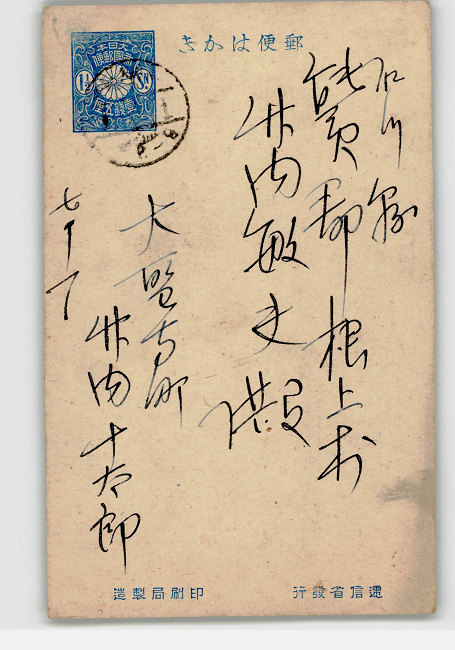 郵便はかき
大日本
帝國郵便
1½ Sn.
壹錢五厘
石川縣
能美郡根上村
竹内敏夫殿
大聖寺町
竹内十太郎
七ノ一
通信省發行
印刷局製造